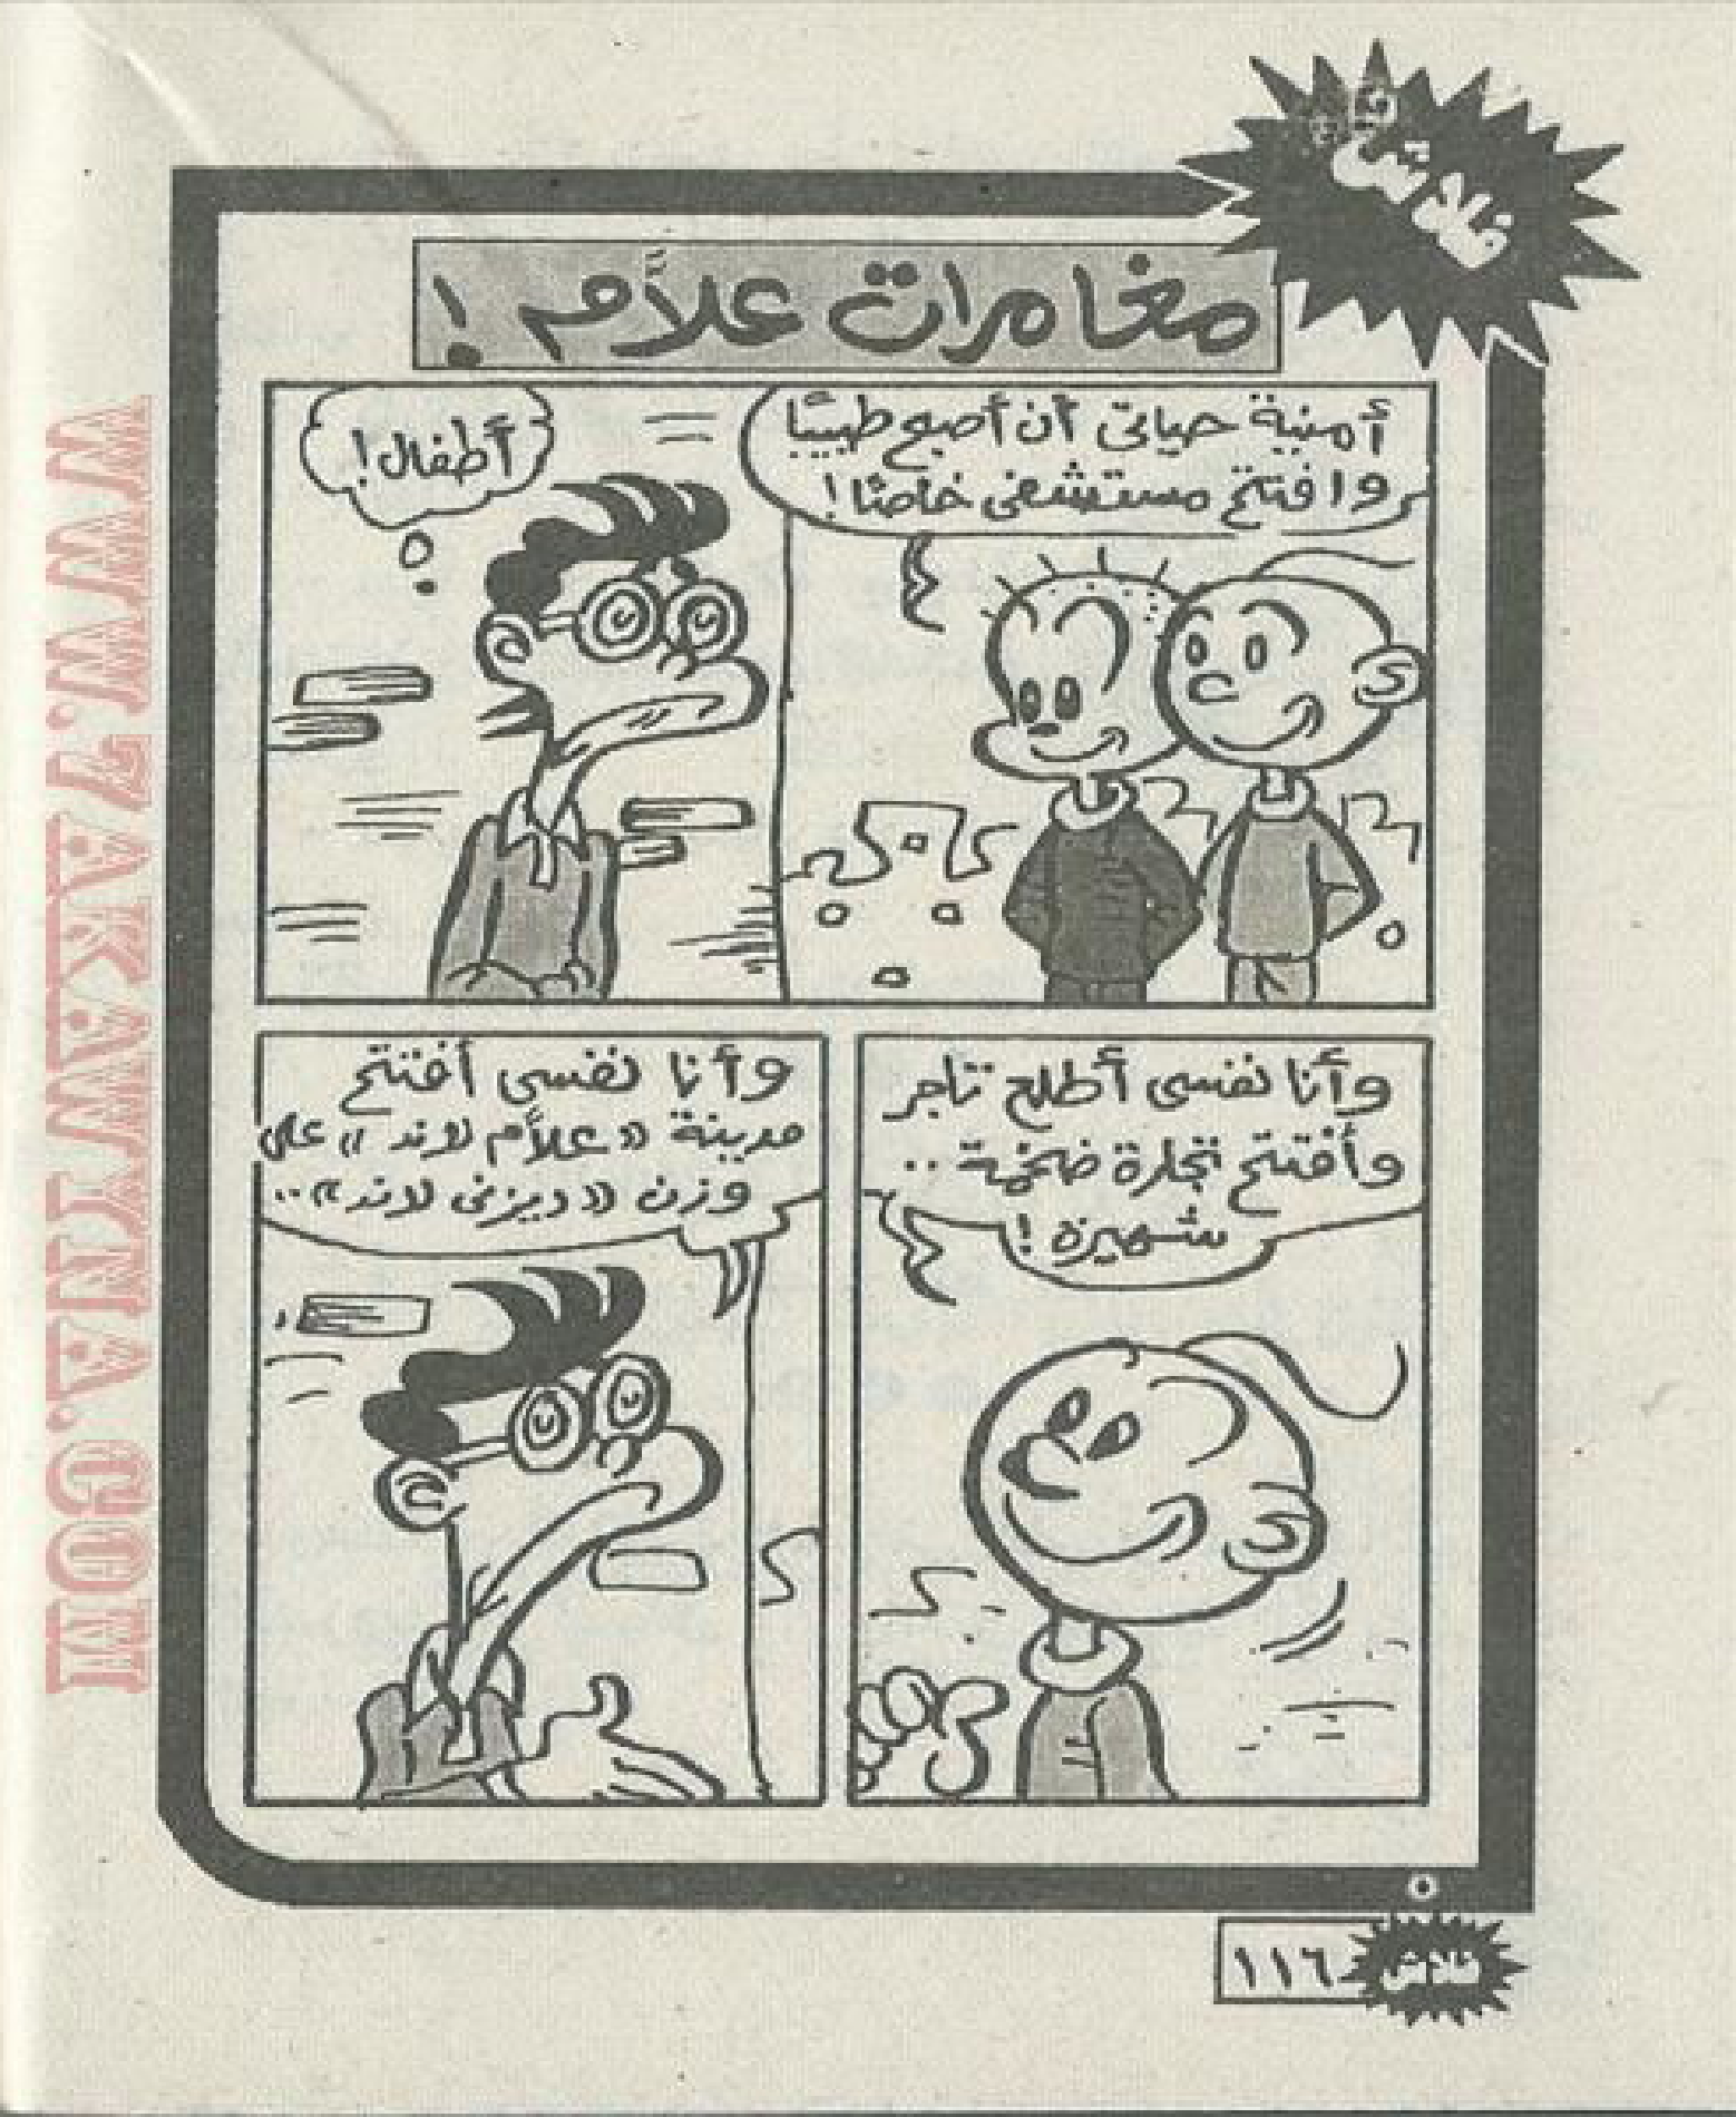 فلاش
مغامرات علاَّم !
أمنية حياتى أن أصبح طبيبًا
وافتتح مستشفى خاصًا !
أطفال !
وأنا نفسى أطلع تاجر
وأفتتح تجارة ضخمة ..
شهيرة !
وأنا نفسى أفتتح
مدينة «علاَّم لاند» على
وزن «ديزنى لاند» ..
فلاش
١١٦
WWW.7AKAWITNA.COM